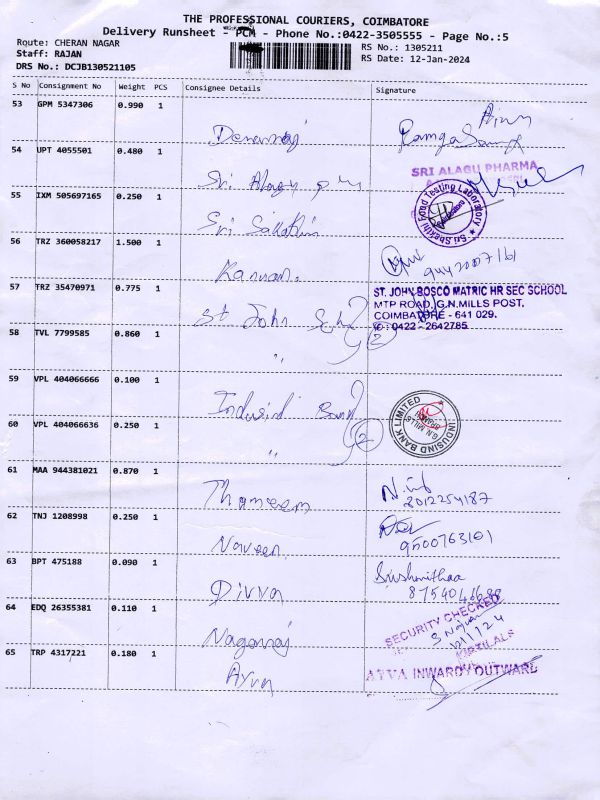 THE PROFESSIONAL COURIERS, COIMBATORE
Delivery Runsheet - PCM - Phone No.:0422-3505555 - Page No.:5
Route: CHERAN NAGAR
Staff: RAJAN
DRS No.: DCJB130521105
RS No.: 1305211
RS Date: 12-Jan-2024
S No Consignment No Weight PCS Consignee Details Signature
53 GPM 5347306 0.990 1
54 UPT 4055501 0.480 1
SRI ALAGU PHARMA
Sri Alagu
55 IXM 505697165 0.250 1
Sri Shakthi Food Testing Laboratory
Sri Sakthi
56 TRZ 360058217 1.500 1
Kannan.
9442007161
57 TRZ 35470971 0.775 1
ST. JOHN BOSCO MATRIC HR SEC SCHOOL
MTP ROAD, G.N.MILLS POST,
COIMBATORE - 641 029.
0422 - 2642785
St John
58 TVL 7799585 0.860 1
2
"
59 VPL 404066666 0.100 1
Indusind Bank
INDUSIND BANK LIMITED
G.N MILLS
60 VPL 404066636 0.250 1
2
"
61 MAA 944381021 0.870 1
Thameem
8012254187
62 TNJ 1208998 0.250 1
Naveen
9500763101
63 BPT 475188 0.090 1
Divya
Sushmithaa
64 EDQ 26355381 0.110 1
SECURITY CHECKED
Nagaraj
65 TRP 4317221 0.180 1
INWARD / OUTWARD